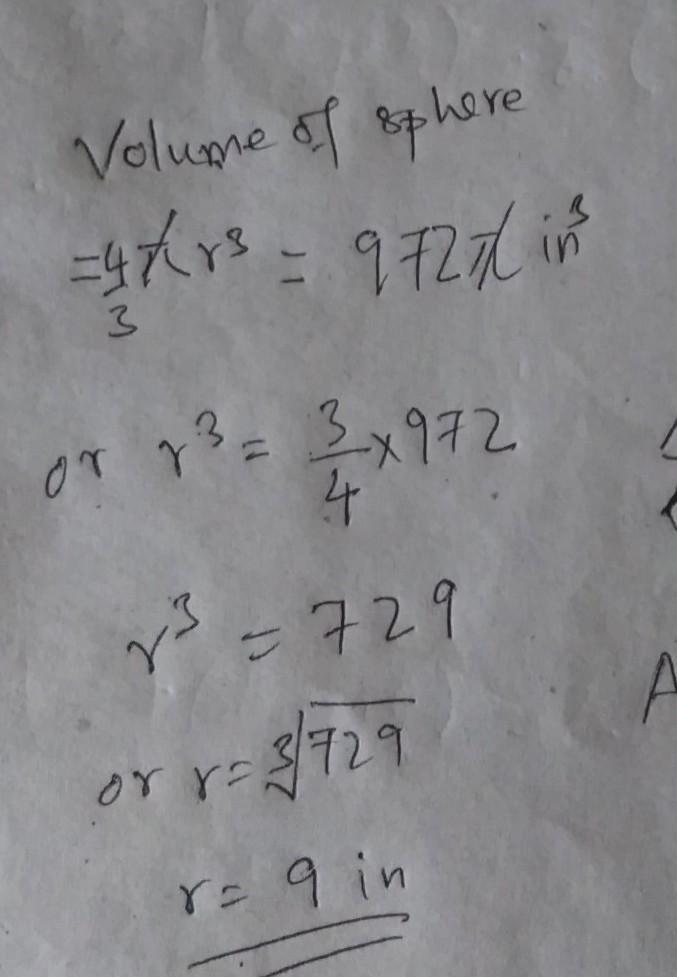 Volume of sphere
= 4/3 π r³ = 972 π in³
or r³ = 3/4 × 972
r³ = 729
or r = ∛729
r = 9 in